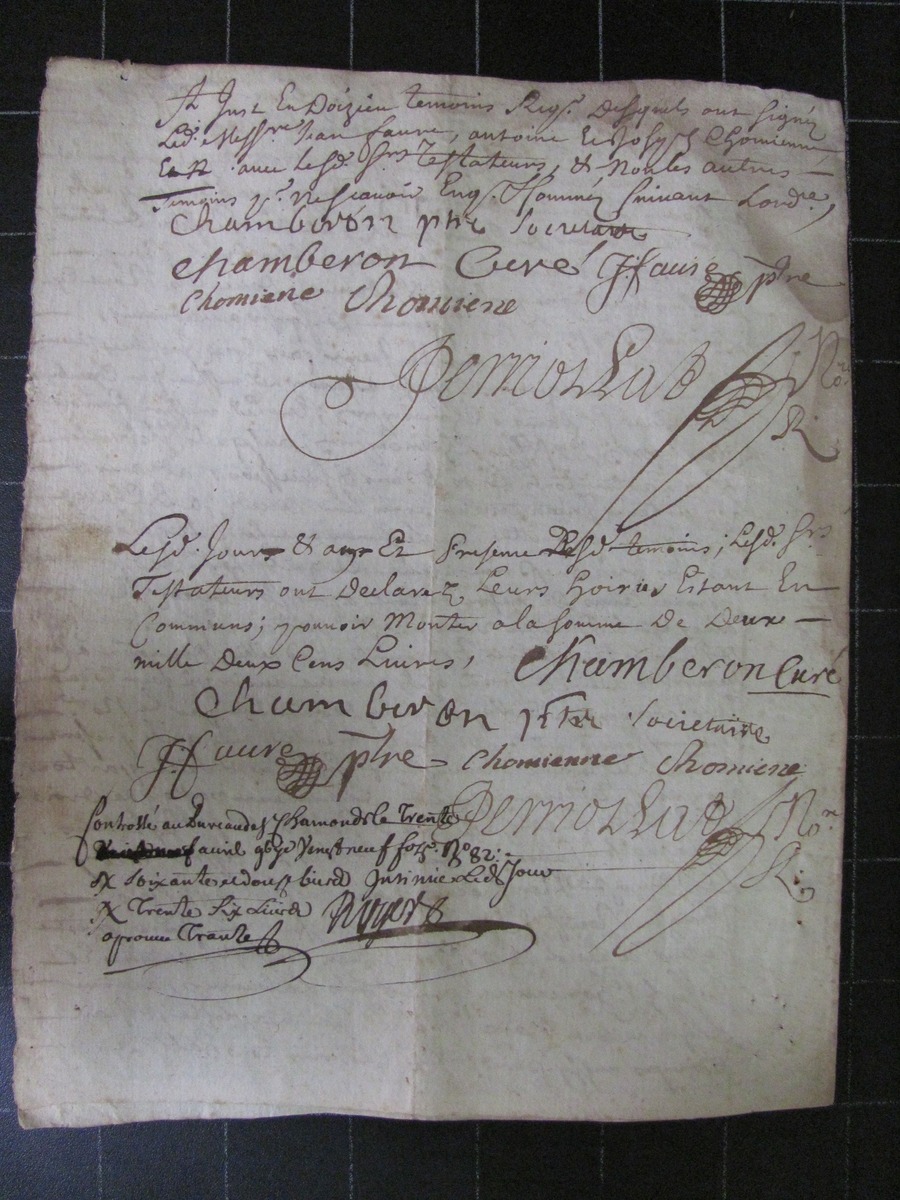 St Just En Doizieu temoins Reqs. desquels ont signés
Led. Messre Jean faure, antoine Et Joseph Chomienne
avec lesd. Srs Testateurs, & Non les autres
Temoins pr. ne scavoir Enqs. & sommés suivant Lordre,
Chamberon ptre Societaire
Chamberon Curé JFaure ptre
Chomiene Chomiene
Nore
R.
Lesd. Jour & an Et presence desd. temoins; Lesd. Srs
Testateurs ont Declarez Leurs hoiries Estant En
Communs; pouvoir Monter a la somme De Deux
mille Deux Cens Livres, Chamberon Curé
Chamberon ptre Societaire
JFaure ptre Chomienne Chomiene
Controllé au Bureau de St Chamond le Trente
avril Vingt neuf fo. No 82.
Rx soixante et douze livres Insinué Led Jour
Rx Trente Six Livres
aprouve Trante
Nore
R.